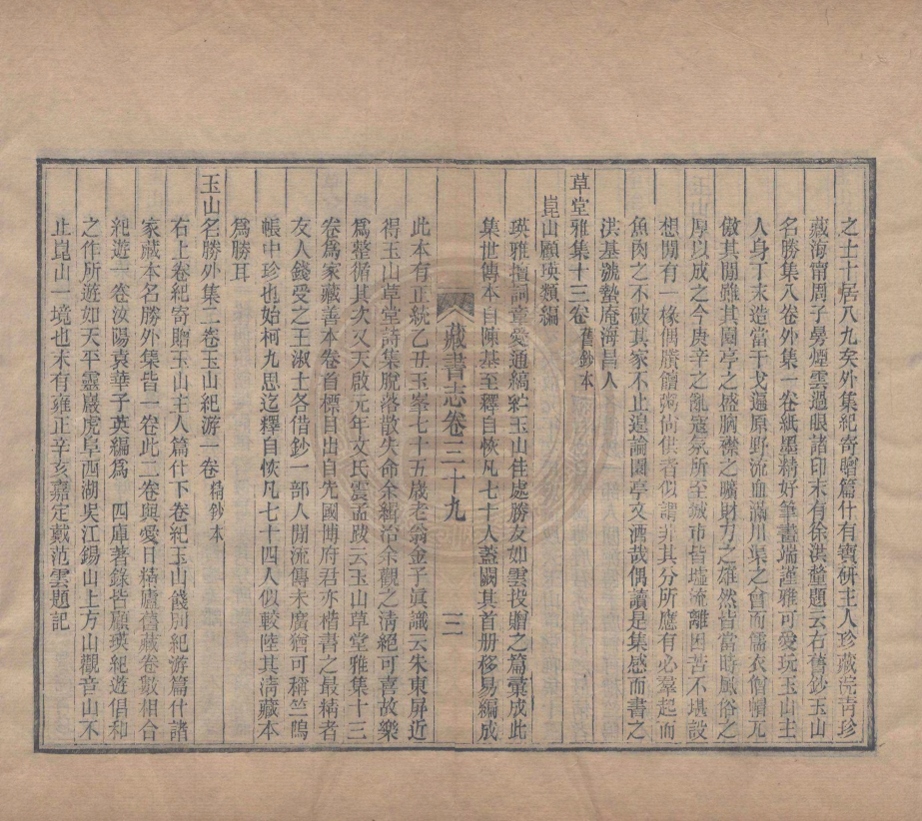 之士十居八九矣外集紀寄贈篇什有寶硏主人珍藏浣靑珍
藏海甯周子勞煙雲過眼諸印末有徐洪釐題云右舊鈔玉山
名勝集八卷外集一卷紙墨精好筆畫端謹雅可愛玩玉山主
人身丁末造當干戈遍原野流血滿川渠之會而儒衣僧帽兀
傲其閒雖其園亭之盛胸襟之曠財力之雄然皆當時風俗之
厚以成之今庚辛之亂寇氛所至城市皆墟流離困苦不堪設
想閒有一椽偶賸饘粥尙供者似謂非其分所應有必羣起而
魚肉之不破其家不止遑論園亭文酒哉偶讀是集感而書之
洪基號蟄庵海昌人
草堂雅集十三卷舊鈔本
崑山顧瑛類編
瑛雅擅詞章愛通縞紵玉山佳處勝友如雲投贈之篇彙成此
集世傳本自陳基至釋自恢凡七十人蓋闕其首册移易編成
藏書志卷三十九
三
此本有正統乙丑玉峯七十五歲老翁金子眞識云朱東屏近
得玉山草堂詩集脫落散失命余緝治余觀之淸絕可喜故樂
爲整備其次又天啟元年文氏震孟跋云玉山草堂雅集十三
卷爲家藏善本卷首標目出自先國博府君亦楷書之最精者
友人錢受之王淑士各借鈔一部人閒流傳未廣猶可稱竺塢
帳中珍也始柯九思迄釋自恢凡七十四人似較陸其淸藏本
爲勝耳
玉山名勝外集二卷玉山紀游一卷精鈔本
右上卷紀寄贈玉山主人篇什下卷紀玉山餞別紀游篇什諸
家藏本名勝外集皆一卷此二卷與愛日精廬舊藏卷數相合
紀遊一卷汝陽袁華子英編爲　四庫著錄皆顧瑛紀遊倡和
之作所遊如天平靈巖虎阜西湖吳江錫山上方山觀音山不
止崑山一境也末有雍正辛亥嘉定戴范雲題記